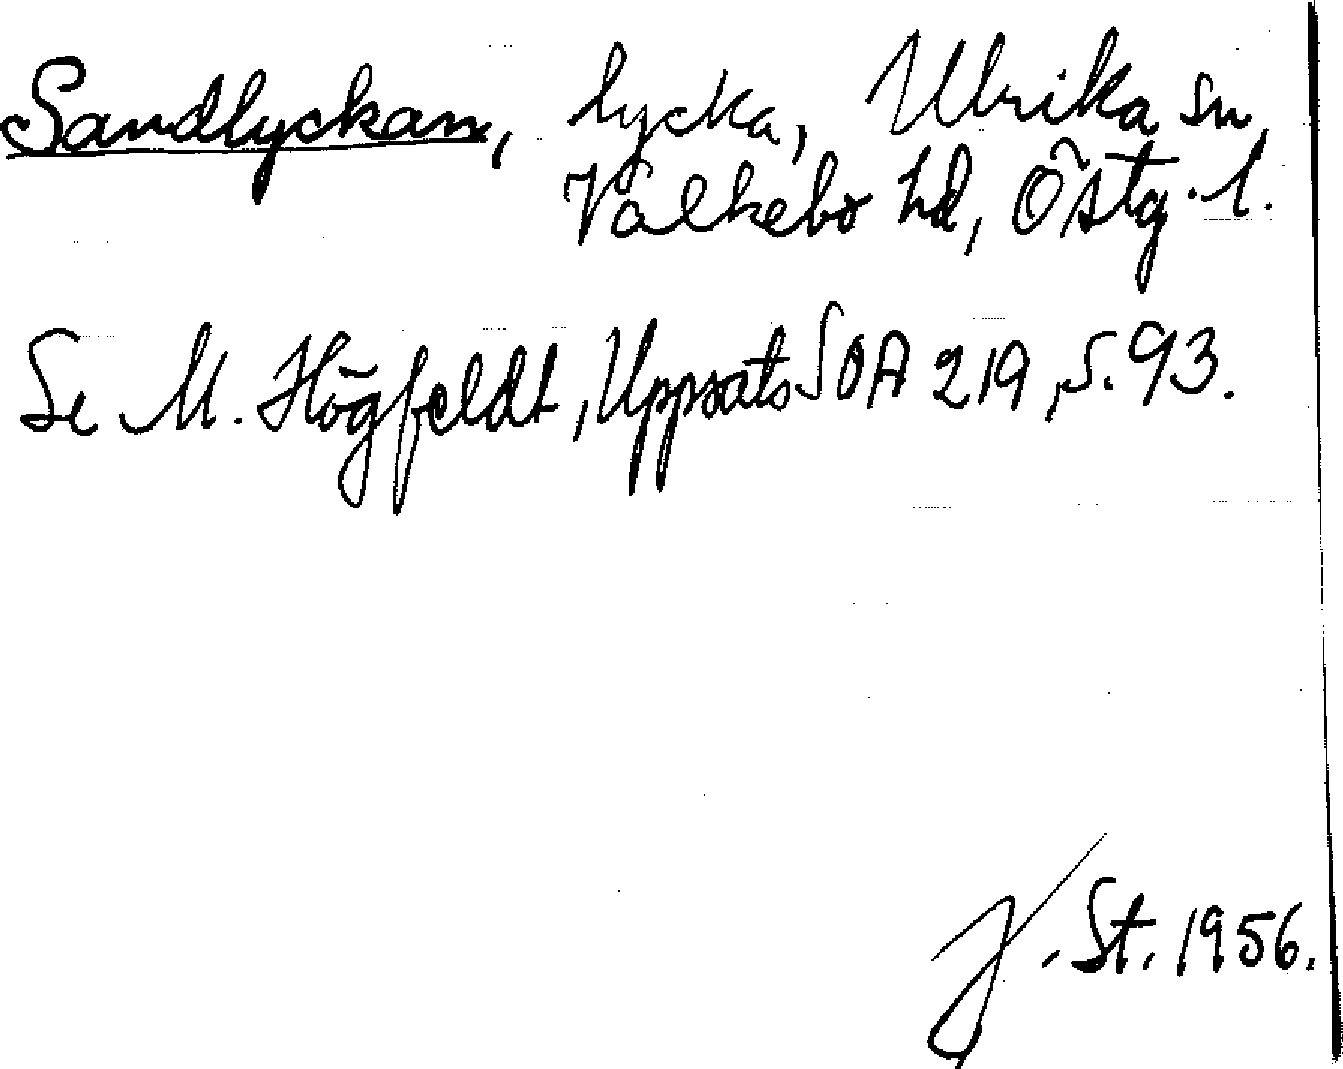 Sandlyckan, lycka, Ulrika sn,
Valkebo hd, Östg. l.
Se M. Högfeldt, Uppsats SOA 219, s. 93.
J. St. 1956.